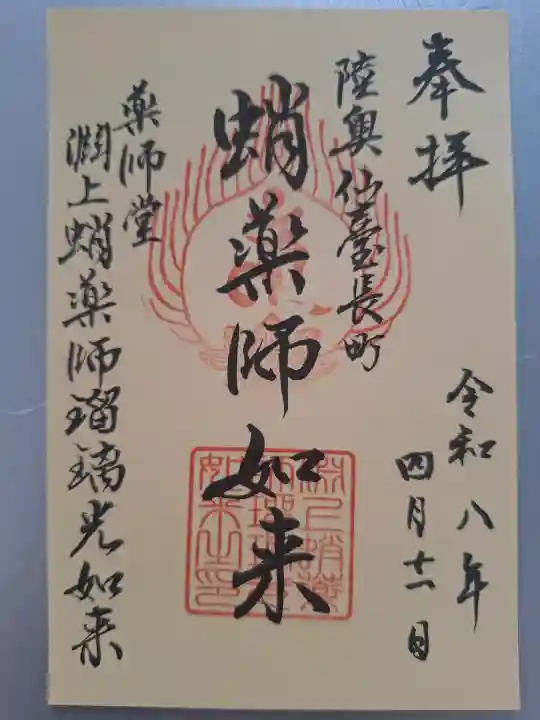 奉拝
令和八年
四月十一日
陸奥仙臺長町
蛸薬師如来
薬師堂
渕上蛸薬師瑠璃光如来